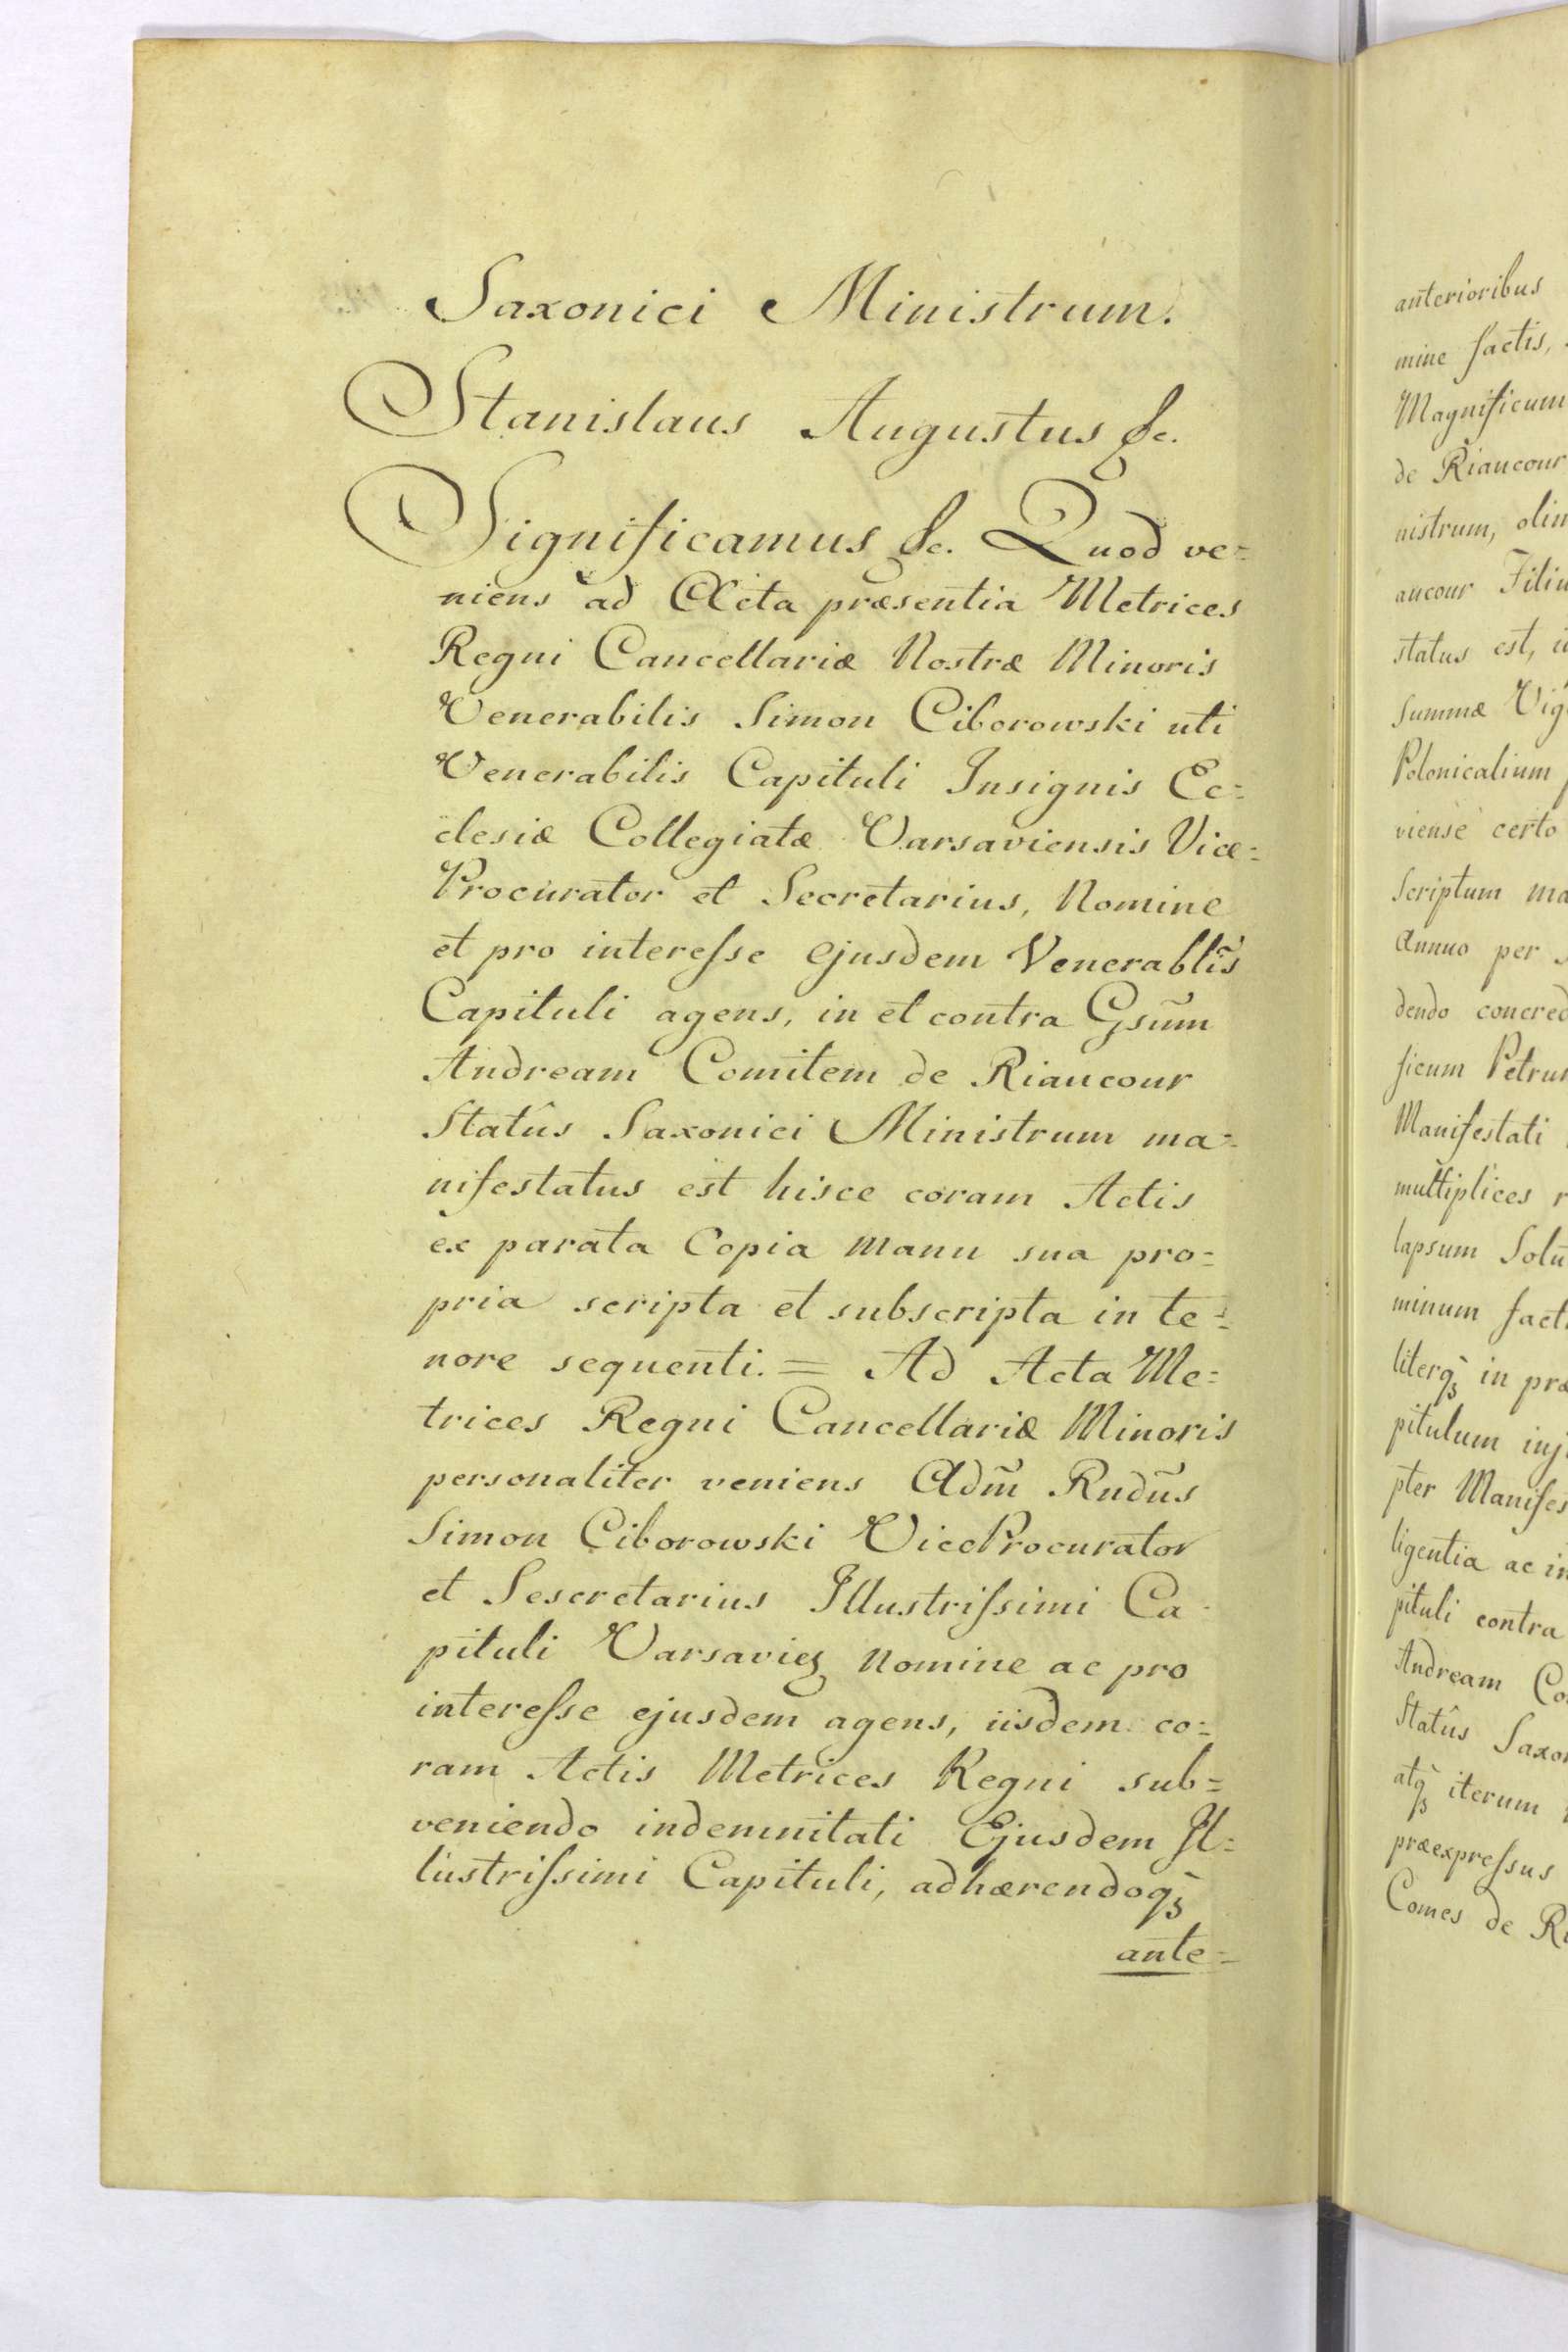 Saxonici Ministrum.
Stanislaus Augustus &c.
Significamus &c. Quod ve=
niens ad Acta præsentia Metrices
Regni Cancellariæ Nostræ Minoris
Venerabilis Simon Ciborowski uti
Venerabilis Capituli Insignis Ec=
clesiæ Collegiatæ Varsaviensis Vice=
Procurator et Secretarius, Nomine
et pro interesse ejusdem Venerabl̃is
Capituli agens, in et contra Gsum̃
Andream Comitem de Riaucour
Statûs Saxonici Ministrum ma=
nifestatus est hisce coram Actis
ex parata Copia manu sua pro=
pria scripta et subscripta in te=
nore sequenti. = Ad Acta Me=
trices Regni Cancellariæ Minoris
personaliter veniens Adm̃ Rndũs
Simon Ciborowski ViceProcurator
et Sescretarius Illustrissimi Ca=
pituli Varsavieȝ Nomine ac pro
interesse ejusdem agens, iisdem co=
ram Actis Metrices Regni sub=
veniendo indemnitati Ejusdem Il=
lustrissimi Capituli, adhærendoqȝ
ante=
anterioribus
mine factis,
Magnificum
de Riaucour
nistrum, olim
aucour Filiu
status est, i
Summæ Vig
Polonicalium
viense certo
Scriptum ma
Annuo per
dendo concred
ficum Petrum
Manifestati
multiplices r
lapsum Solu
minum fact
literqȝ in præ
pitulum inj
pter Manifes
ligentia ac in
pituli contra
Andream Co
Statûs Saxon
atqȝ iterum
præexpressus
Comes de Ri